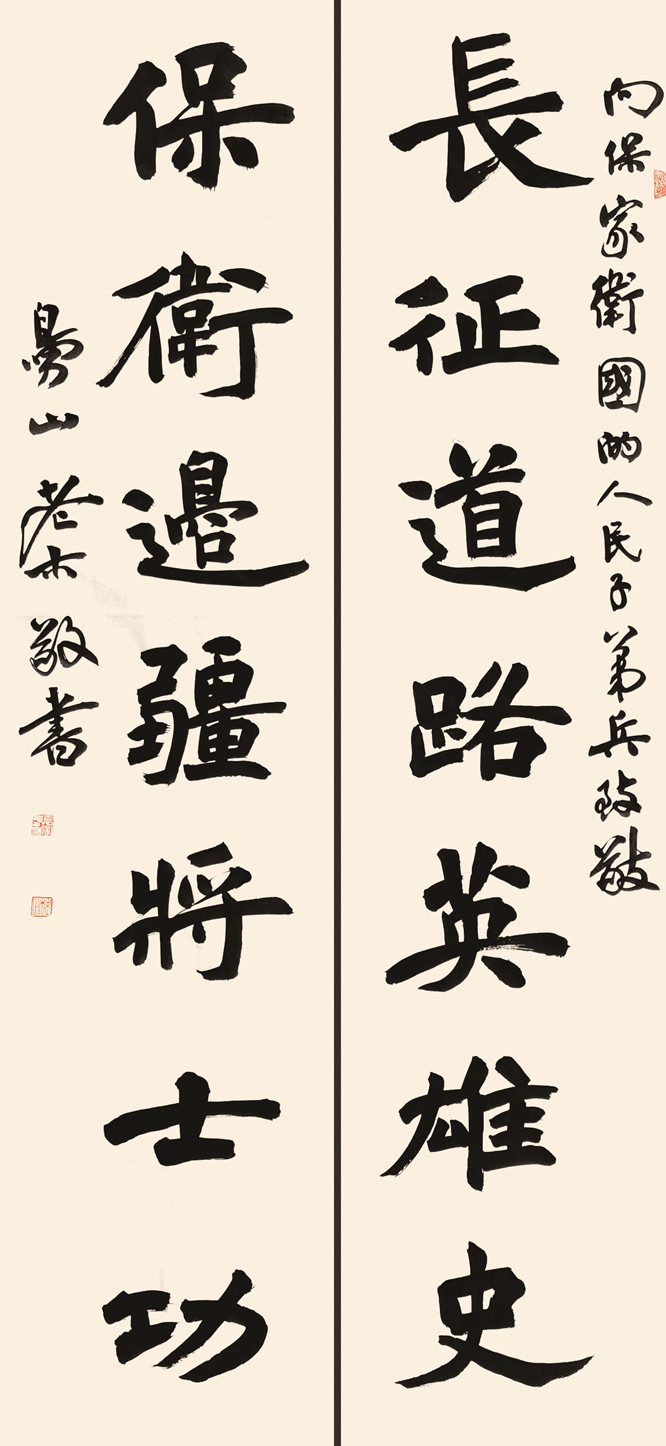 向保家衛國的人民子弟兵致敬
長征道路英雄史
保衛邊疆將士功
山老木敬書